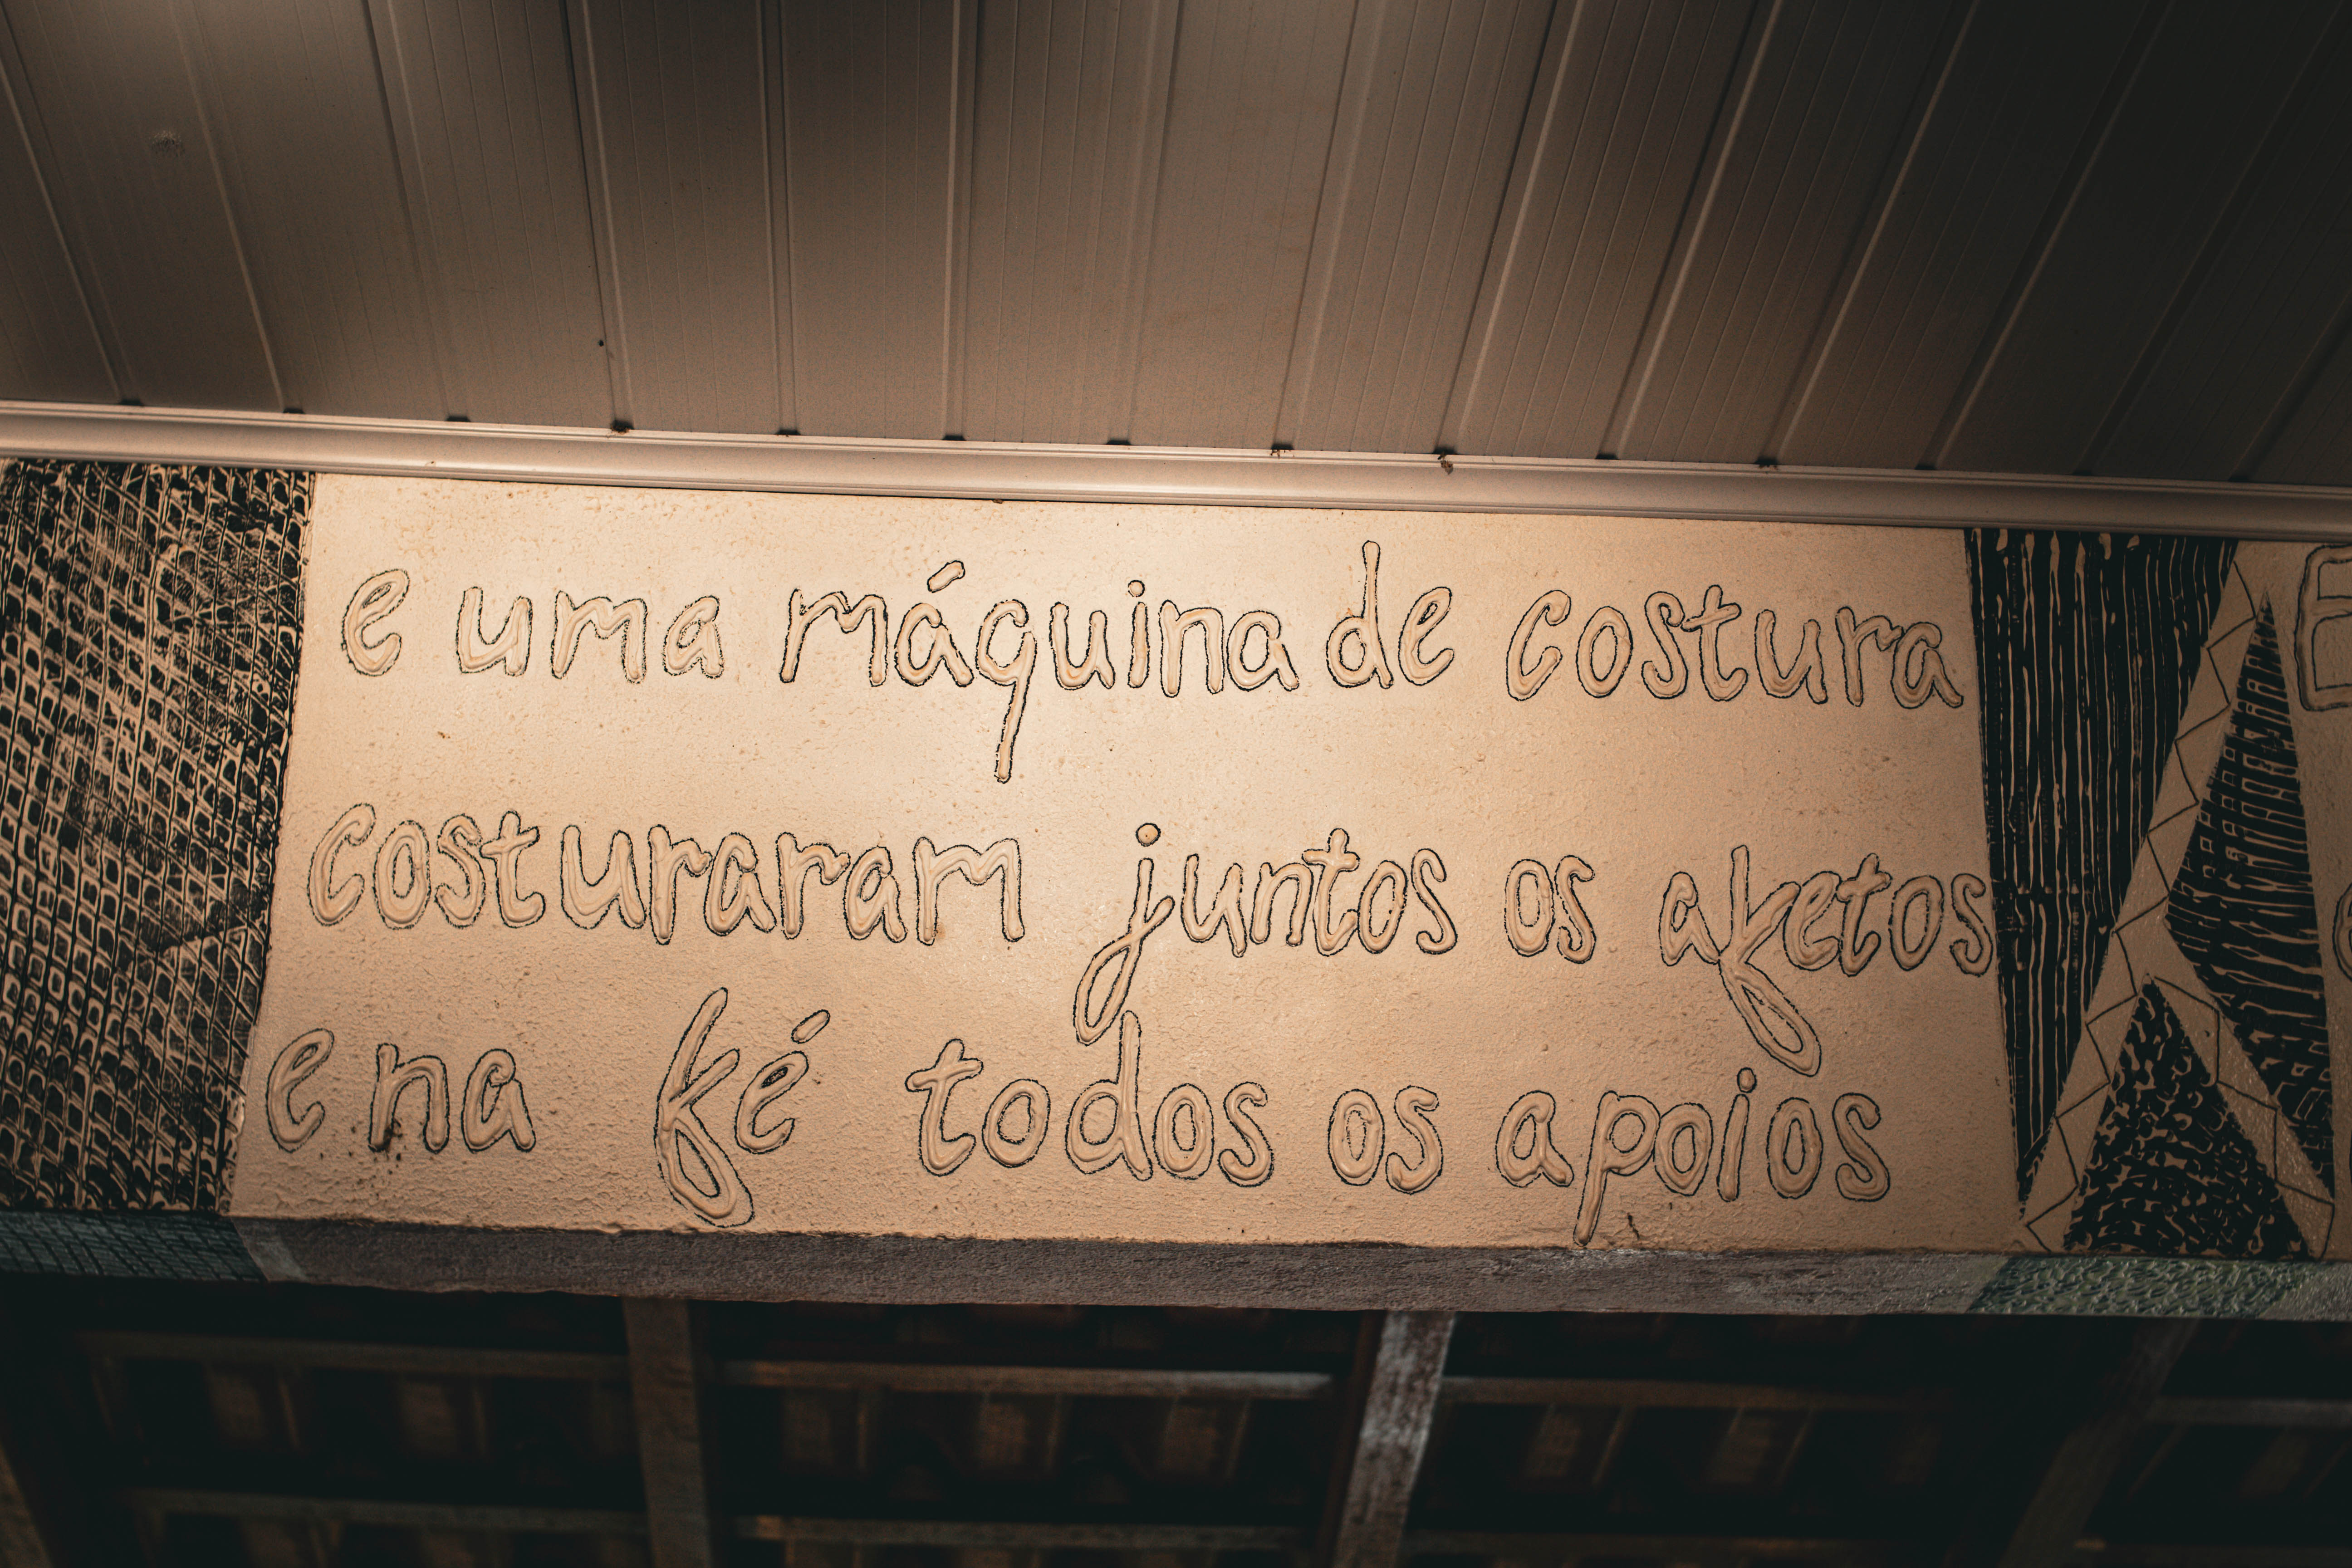 e uma máquina de costura
costuraram juntos os afetos
e na fé todos os apoios